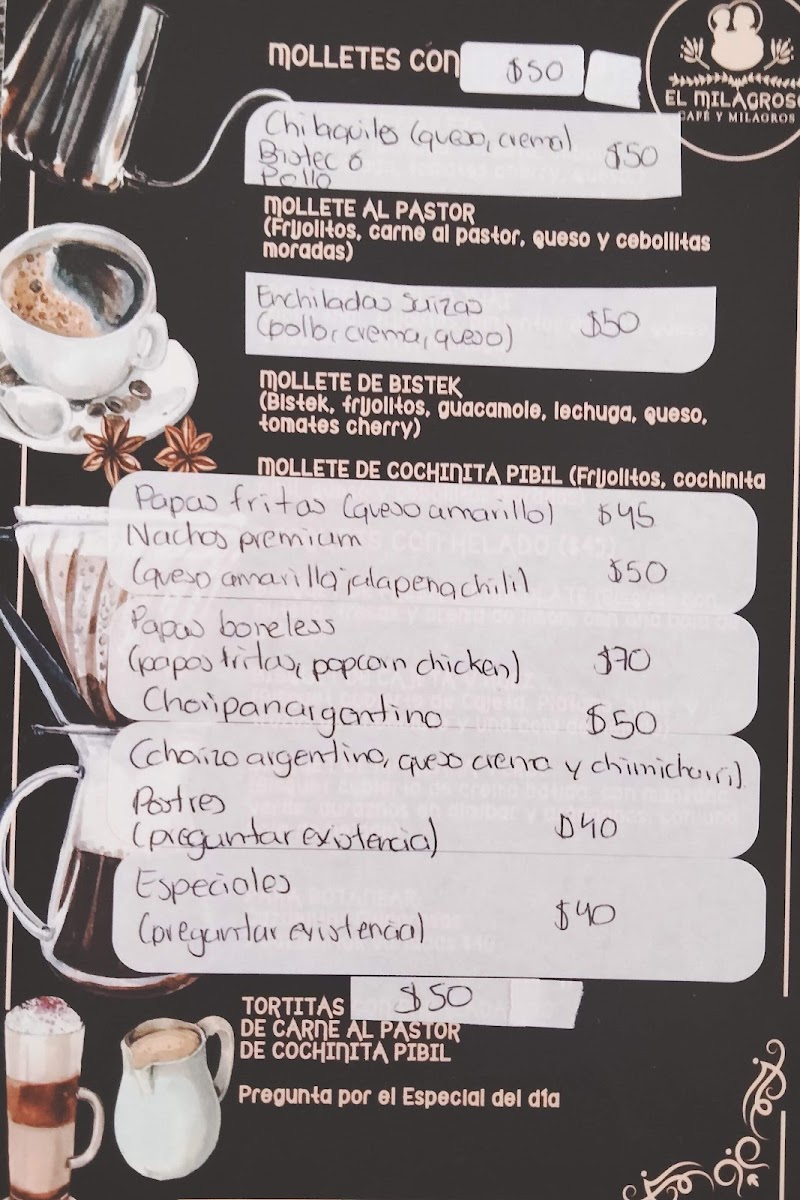 MOLLETES CON $50
EL MILAGROSO
CAFÉ Y MILAGROS
Chilaquiles (queso, crema) $50
Bistec ó
Pollo
MOLLETE AL PASTOR
(Frijolitos, carne al pastor, queso y cebollitas
moradas)
Enchiladas suizas $50
(pollo, crema, queso)
MOLLETE DE BISTEK
(Bistek, frijolitos, guacamole, lechuga, queso,
tomates cherry)
MOLLETE DE COCHINITA PIBIL (Frijolitos, cochinita
Papas fritas (queso amarillo) $45
Nachos premium
(queso amarillo jalapeña chili) $50
Papas boneless
(papas fritas, popcorn chicken) $70
Choripan argentino $50
(chorizo argentino, queso crema y chimichurri).
Postres
(preguntar existencia) $40
Especiales
(preguntar existencia) $40
TORTITAS $50
DE CARNE AL PASTOR
DE COCHINITA PIBIL
Pregunta por el Especial del día